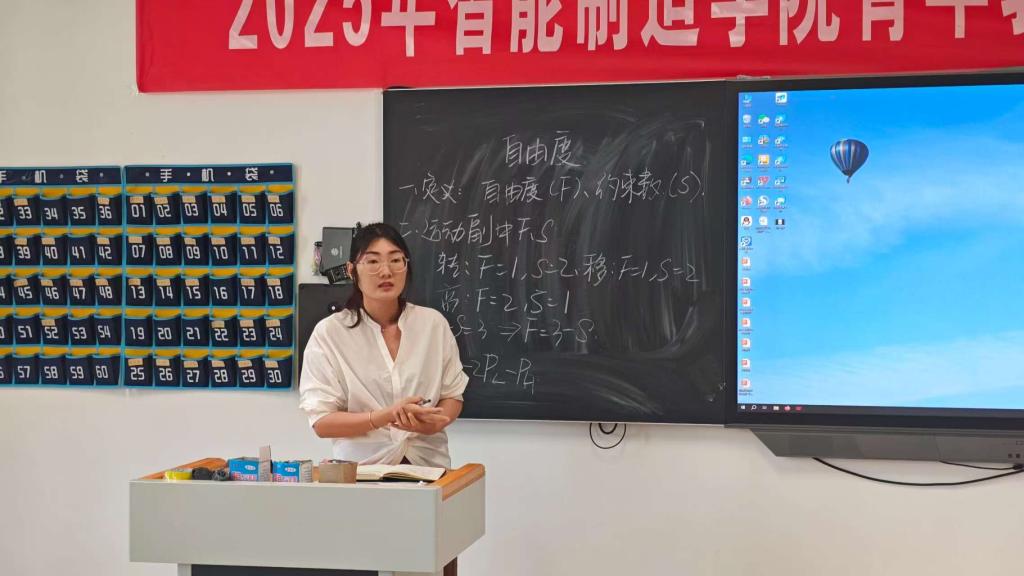 2025年智能制造学院青年教
手机袋
·手·机·袋·
33 34 35 36
01 02 03 04 05 06
39 40 41 42
07 08 09 10 11 12
45 46 47 48
13 14 15 16 17 18
51 52 53 54
19 20 21 22 23 24
57 58 59 60
25 26 27 28 29 30
自由度
一.定义: 自由度(F)、约束数(S).
二.运动副中F.S
转: F=1, S=2. 移: F=1, S=2
高: F=2, S=1
S=3 → F=3-S.
-2PL-PH